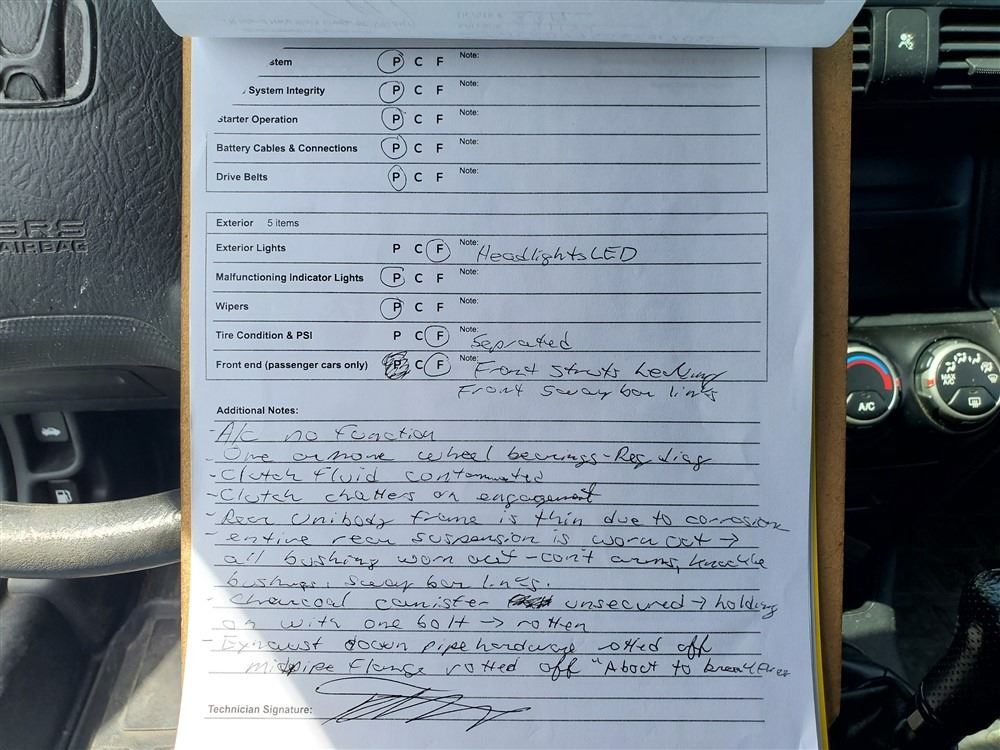 stem P C F Note:
System Integrity P C F Note:
Starter Operation P C F Note:
Battery Cables & Connections P C F Note:
Drive Belts P C F Note:
Exterior 5 items
Exterior Lights P C F Note: Headlights LED
Malfunctioning Indicator Lights P C F Note:
Wipers P C F Note:
Tire Condition & PSI P C F Note: Seprated
Front end (passenger cars only) P C F Note: Front struts leaking
Front sway bar links
Additional Notes:
- A/c no function
- One or more wheel bearings - Req diag
- Clutch fluid
- Clutch chatters on engagement
- Rear unibody frame is thin due to corrosion
- entire rear suspension is worn out →
all bushing worn out - cont arms, knuckle
bushings, sway bar links.
- Charcoal canister unsecured → holding
on with one bolt → rotten
- Exhaust down pipe hardware rotted off
midpipe flange rotted off "About to break free
Technician Signature:
SRS
AIRBAG
A/C
MAX A/C